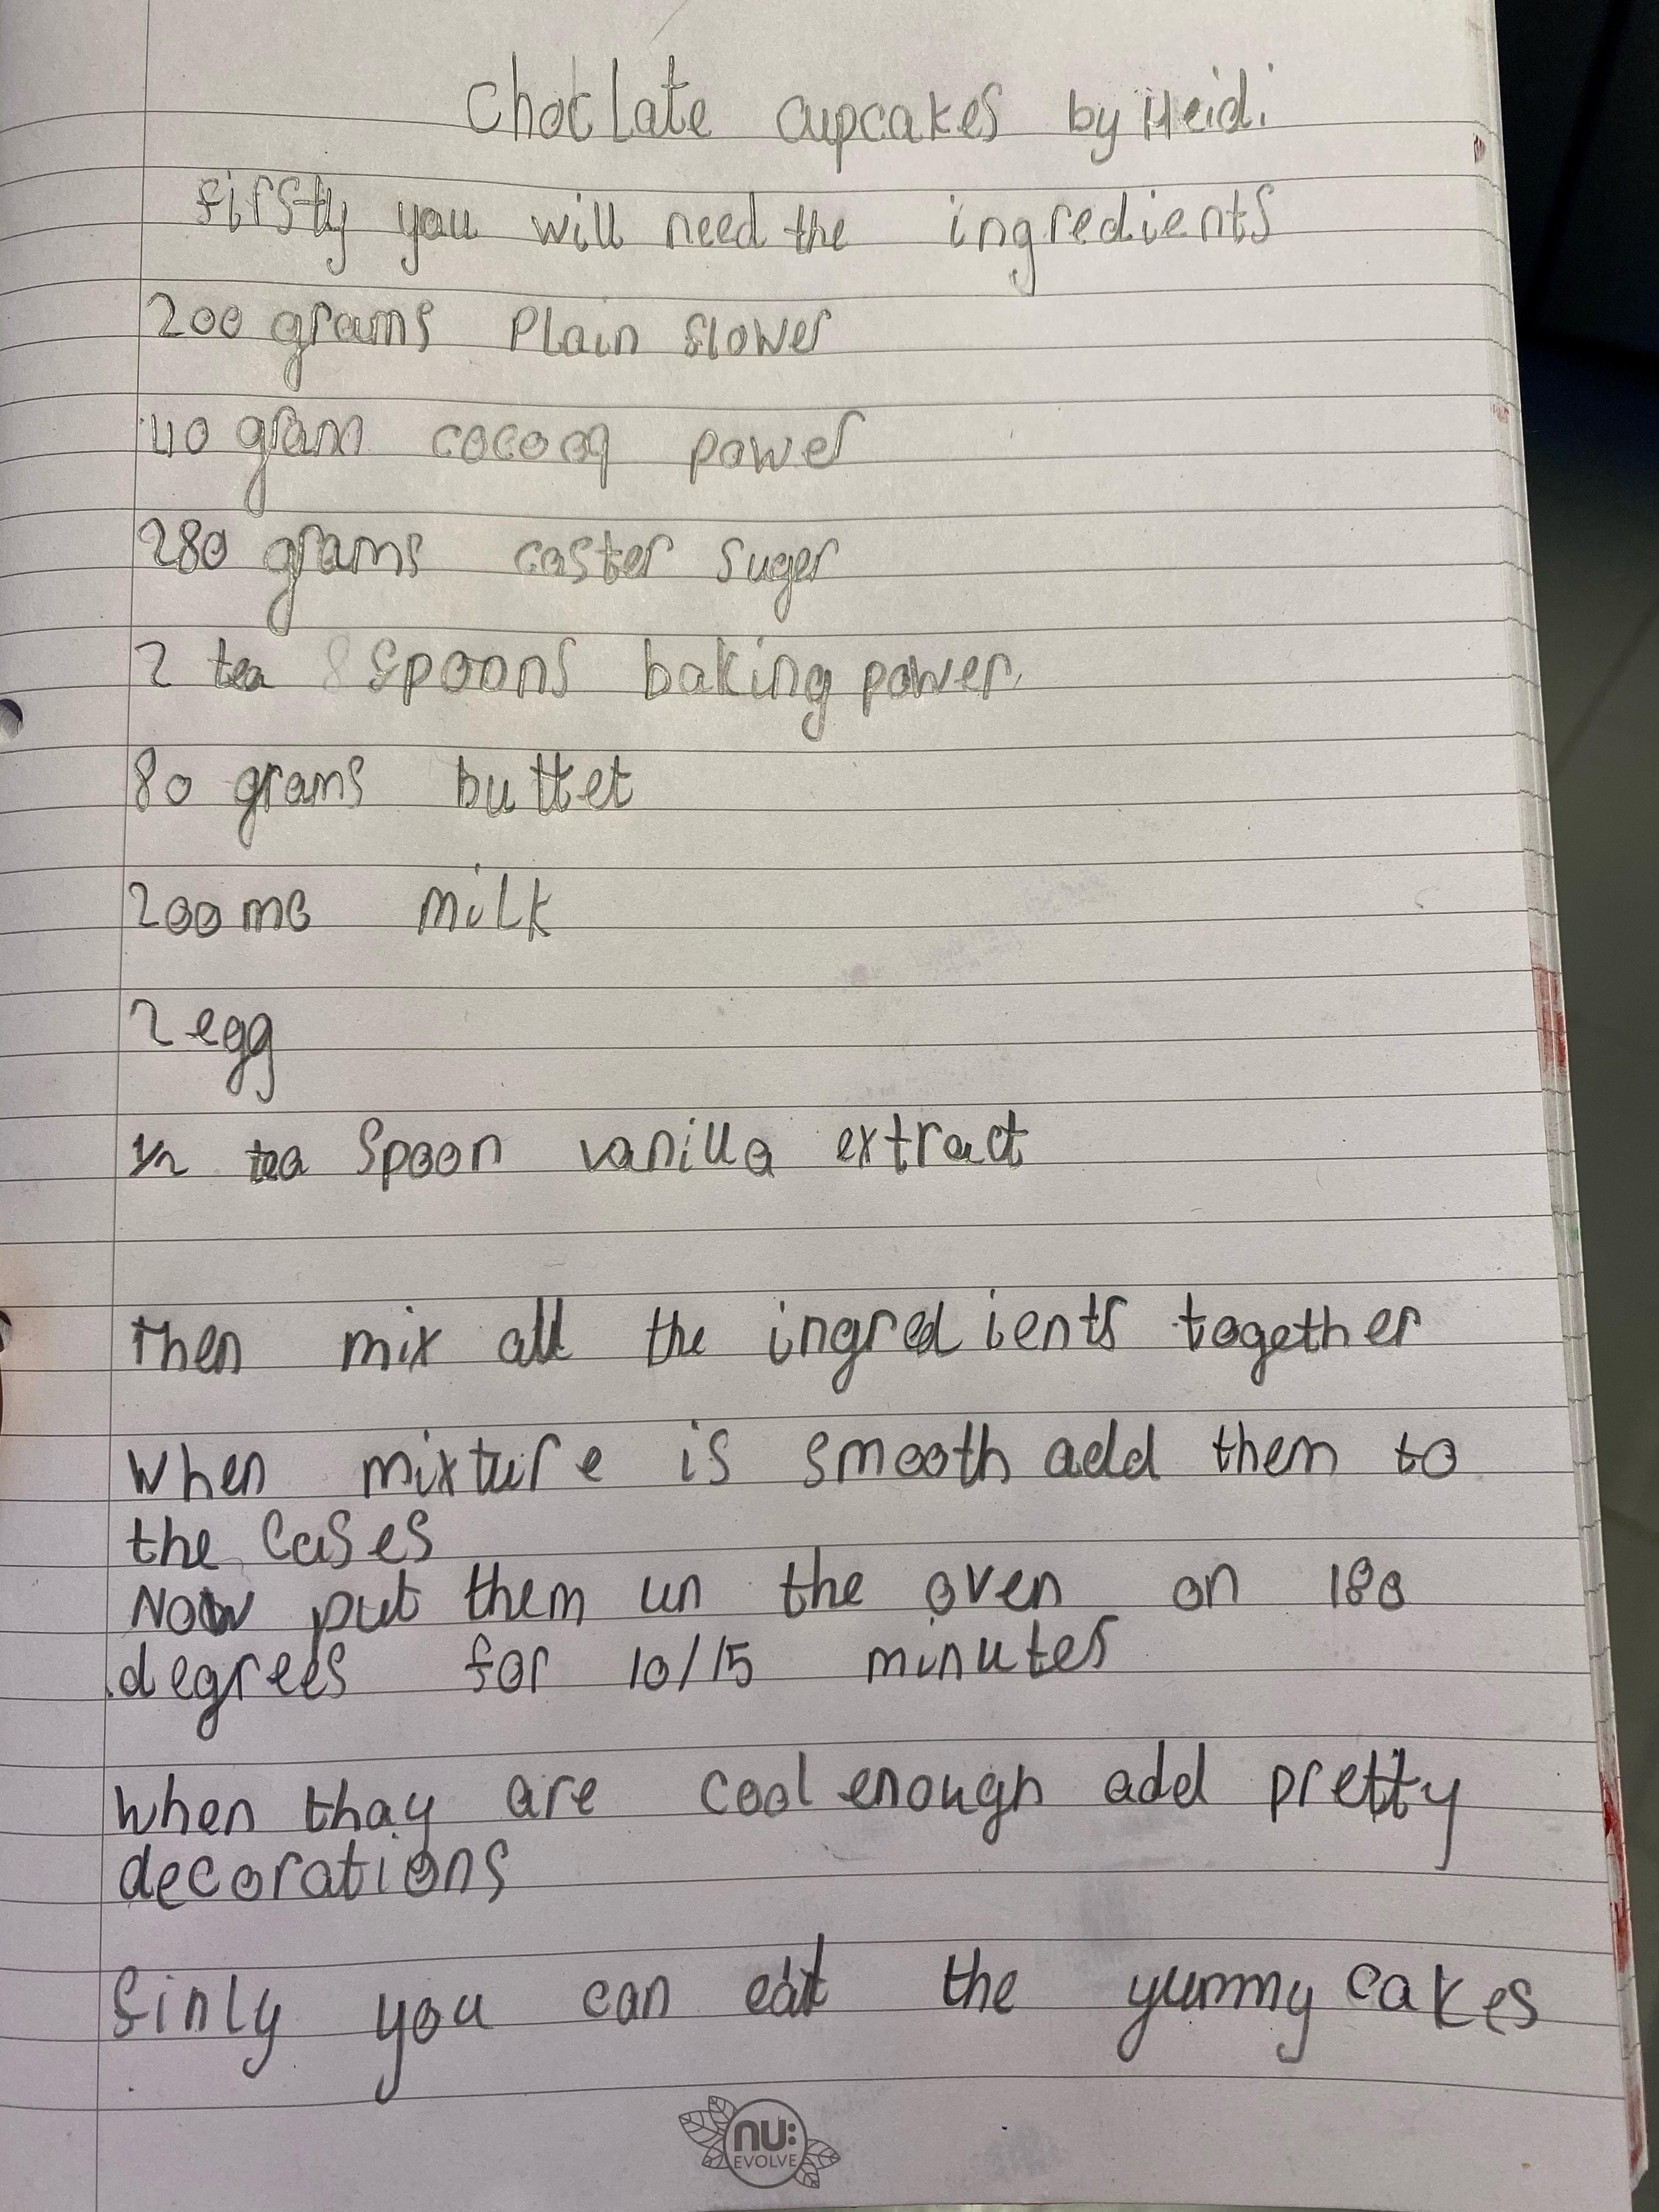 Choclate cupcakes by Heidi
firstly you will need the ingredients
200 grams Plain flower
40 gram cocoaq power
280 grams caster suger
2 tea spoons baking power
80 grams buttet
200 ml milk
2 egg
1/2 tea spoon vanilla extract
Then mix all the ingredients together
When mixture is smooth add them to
the cases
Now put them un the oven on 180
degrees for 10/15 minutes
When thay are cool enough add pretty
decorations
finly you can eat the yummy cakes
nu:
EVOLVE